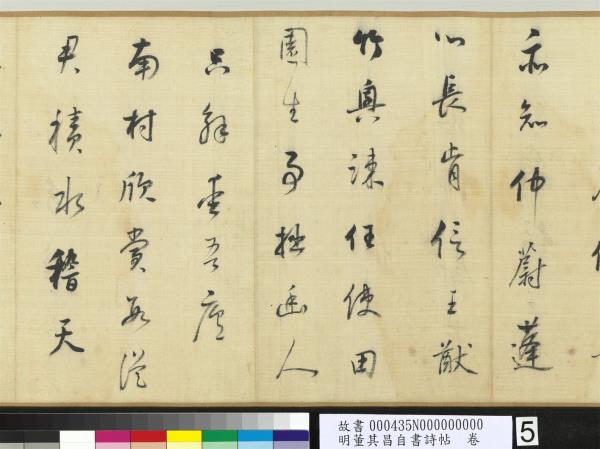 亦知仲蔚蓬
心長肯信王猷
竹與諫任使田
園生事拙幽人
只解愛吾廬
南村欣賞每從
君積水稽天
故書000435N000000000
明董其昌自書詩帖 卷
5